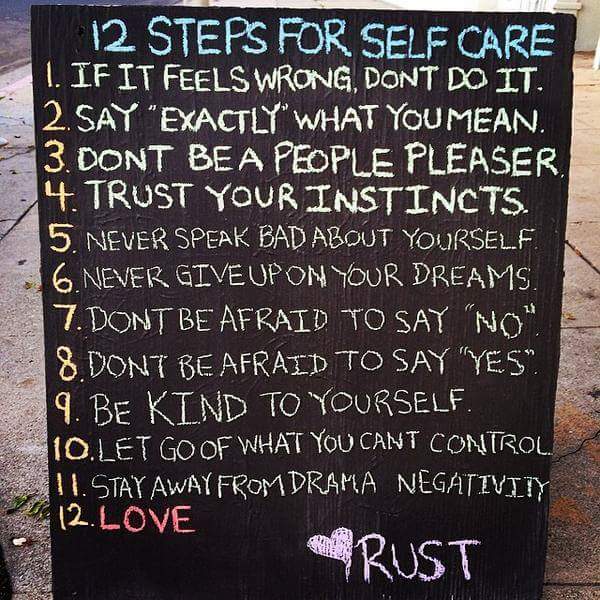 12 STEPS FOR SELF CARE
1. IF IT FEELS WRONG, DONT DO IT.
2. SAY "EXACTLY" WHAT YOU MEAN.
3. DONT BE A PEOPLE PLEASER.
4. TRUST YOUR INSTINCTS.
5. NEVER SPEAK BAD ABOUT YOURSELF.
6. NEVER GIVE UP ON YOUR DREAMS.
7. DONT BE AFRAID TO SAY "NO".
8. DONT BE AFRAID TO SAY "YES".
9. BE KIND TO YOURSELF.
10. LET GO OF WHAT YOU CANT CONTROL
11. STAY AWAY FROM DRAMA NEGATIVITY
12. LOVE
RUST